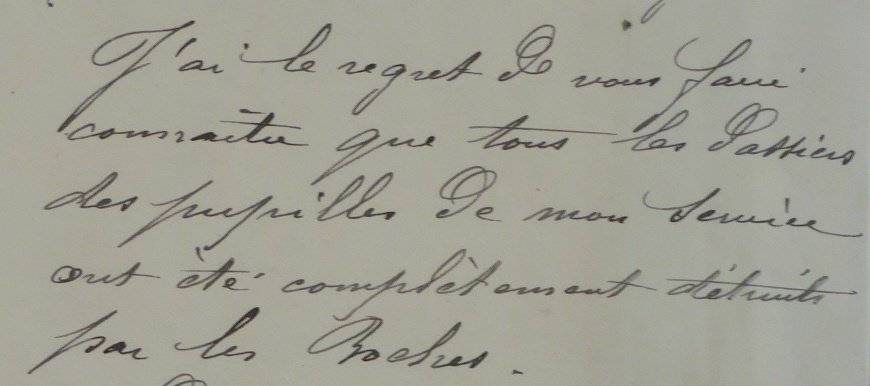 J'ai le regret de vous faire
connaître que tous les dossiers
des pupilles de mon service
ont été complètement détruits
par les Boches.